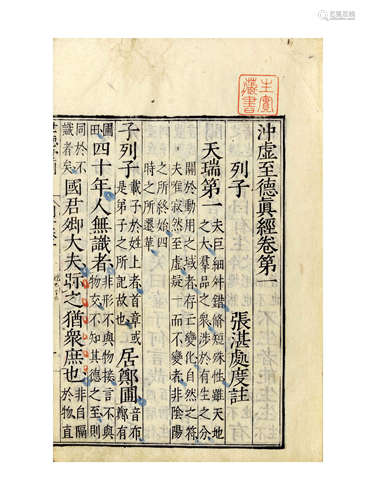 沖虛至德真經卷第一
列子 張湛處度註
天瑞第一
夫巨細舛錯脩短殊性雖天地
之大羣品之衆涉於有生之分
關於動用之域者存亡變化自然之符
夫唯寂然至虛凝一而不變者非陰陽
之所終始四
時之所遷革
子列子
載子於姓上者首章或
是弟子之所記故也
居鄭圃
音布
鄭有
圃
田
四十年人無識者
非形不與物接言不與
物交不知其德之至則
同於不
識者矣
國君卿大夫眎之猶衆庶也
非自隔
於物直
藏書